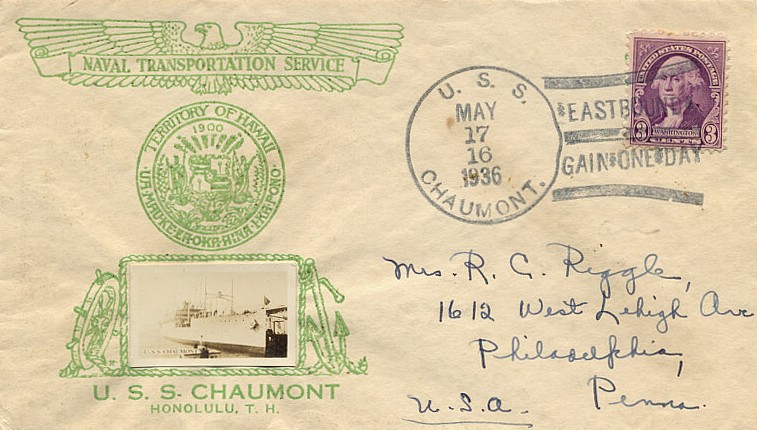 NAVAL TRANSPORTATION SERVICE
TERRITORY OF HAWAII
1900
UA MAU KE EA O KA AINA I KA PONO
U.S.S. CHAUMONT
U. S. S. CHAUMONT
HONOLULU, T. H.
U. S. S.
MAY
17
16
1936
CHAUMONT.
EASTBOUND
GAIN ONE DAY
UNITED STATES POSTAGE
WASHINGTON
3 CENTS 3
Mrs. R. C. Riggle,
1612 West Lehigh Ave
Philadelphia,
Penna.
U.S.A.